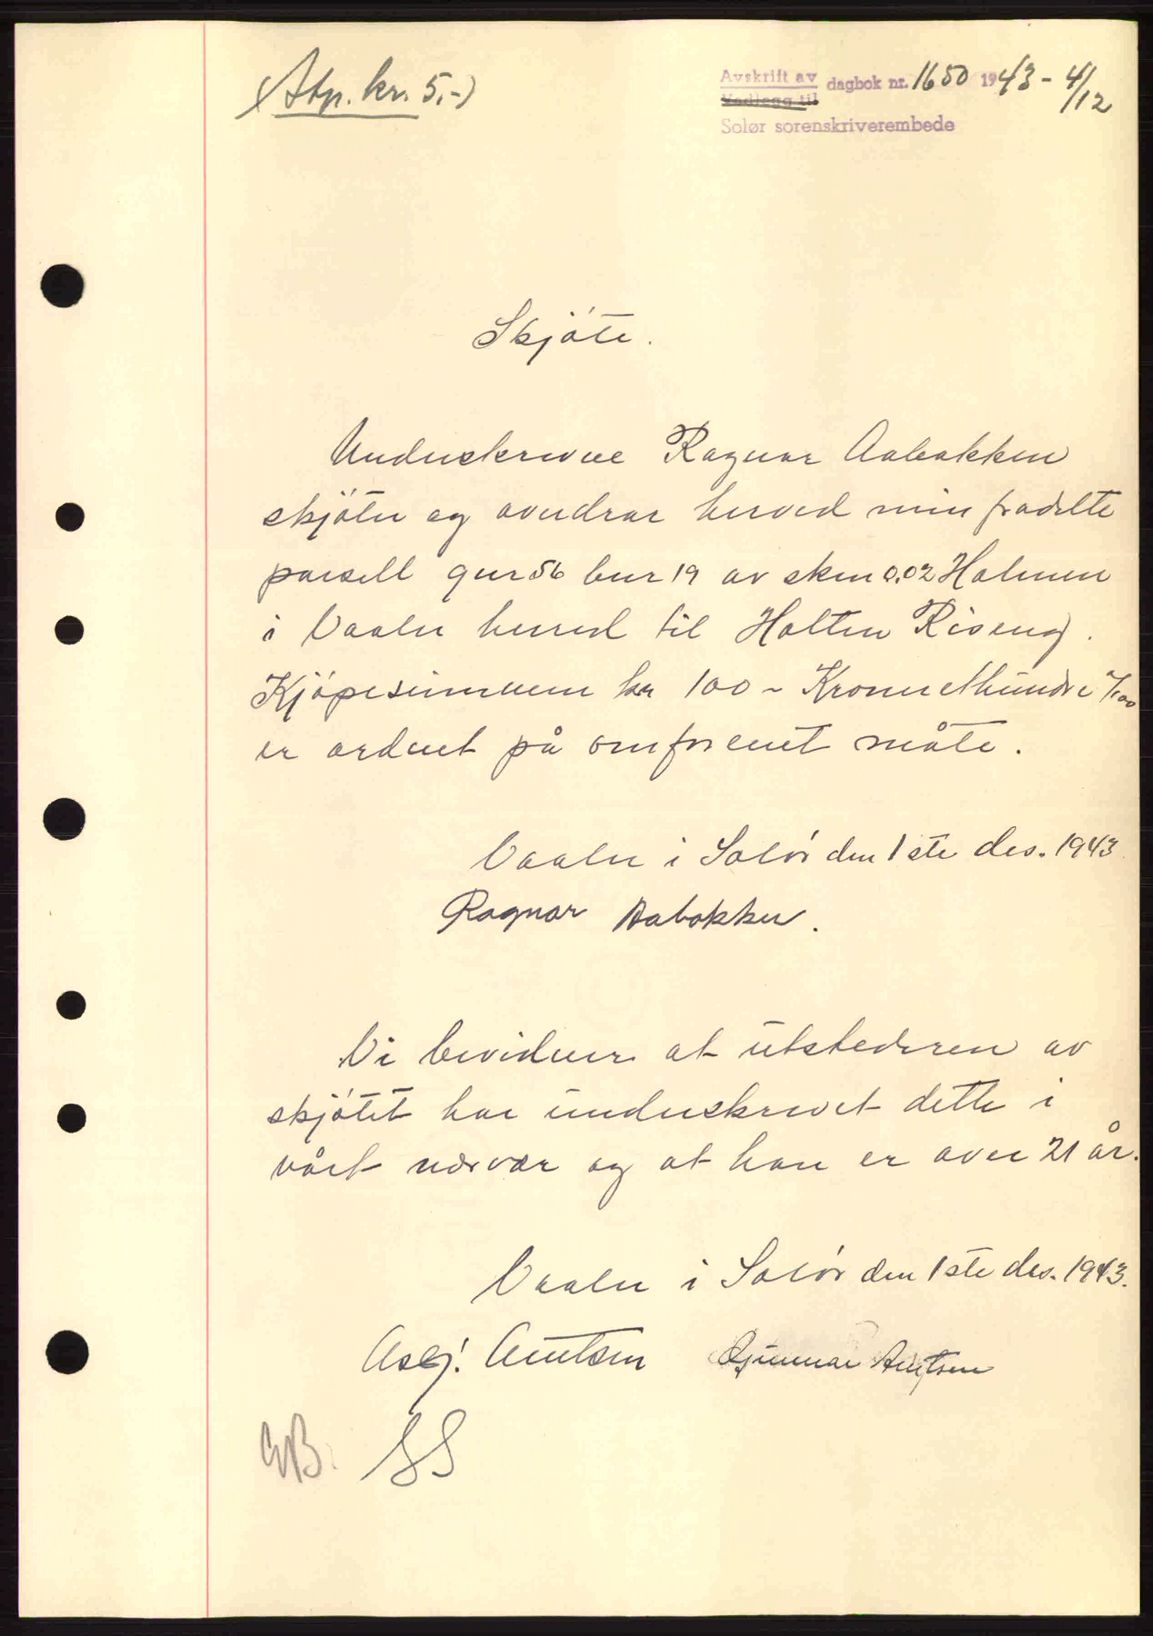 (Stp. kr. 5,-)
Avskrift av dagbok nr. 1650 1943 - 4/12
Vedlegg til
Solør sorenskriverembede
Skjöte.
Underskrevne Ragnar Aabakken
skjöter og overdrar herved min fradelte
parsell gnr 56 bnr 19 av skm 0,02 Holmen
i Vaaler herred til Holten Riseng.
Kjöpesummen kr 100 - Kroner Ethundre 0/100
er ordnet på omforenet måte.
Vaaler i Solör den 1ste des. 1943
Ragnar Aabakken.
Vi bevidner at utstederen av
skjötet har underskrevet dette i
vårt nærvær og at han er over 21 år.
Vaaler i Solör den 1ste des. 1943.
Asbj. Arntsen Gunnar Arntsen